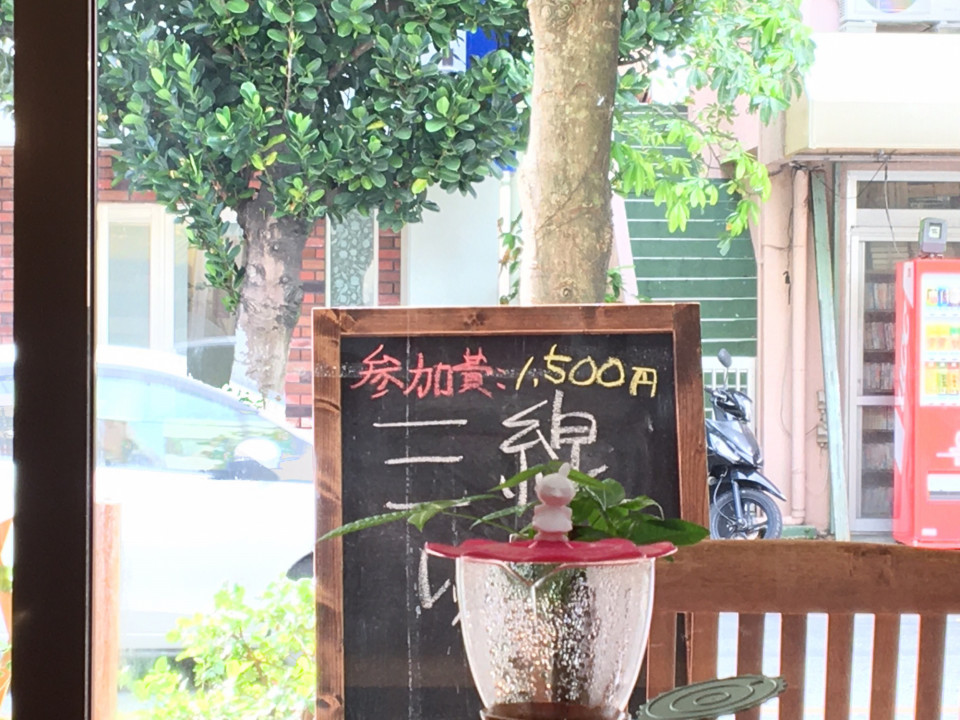 参加費:1,500円
三線